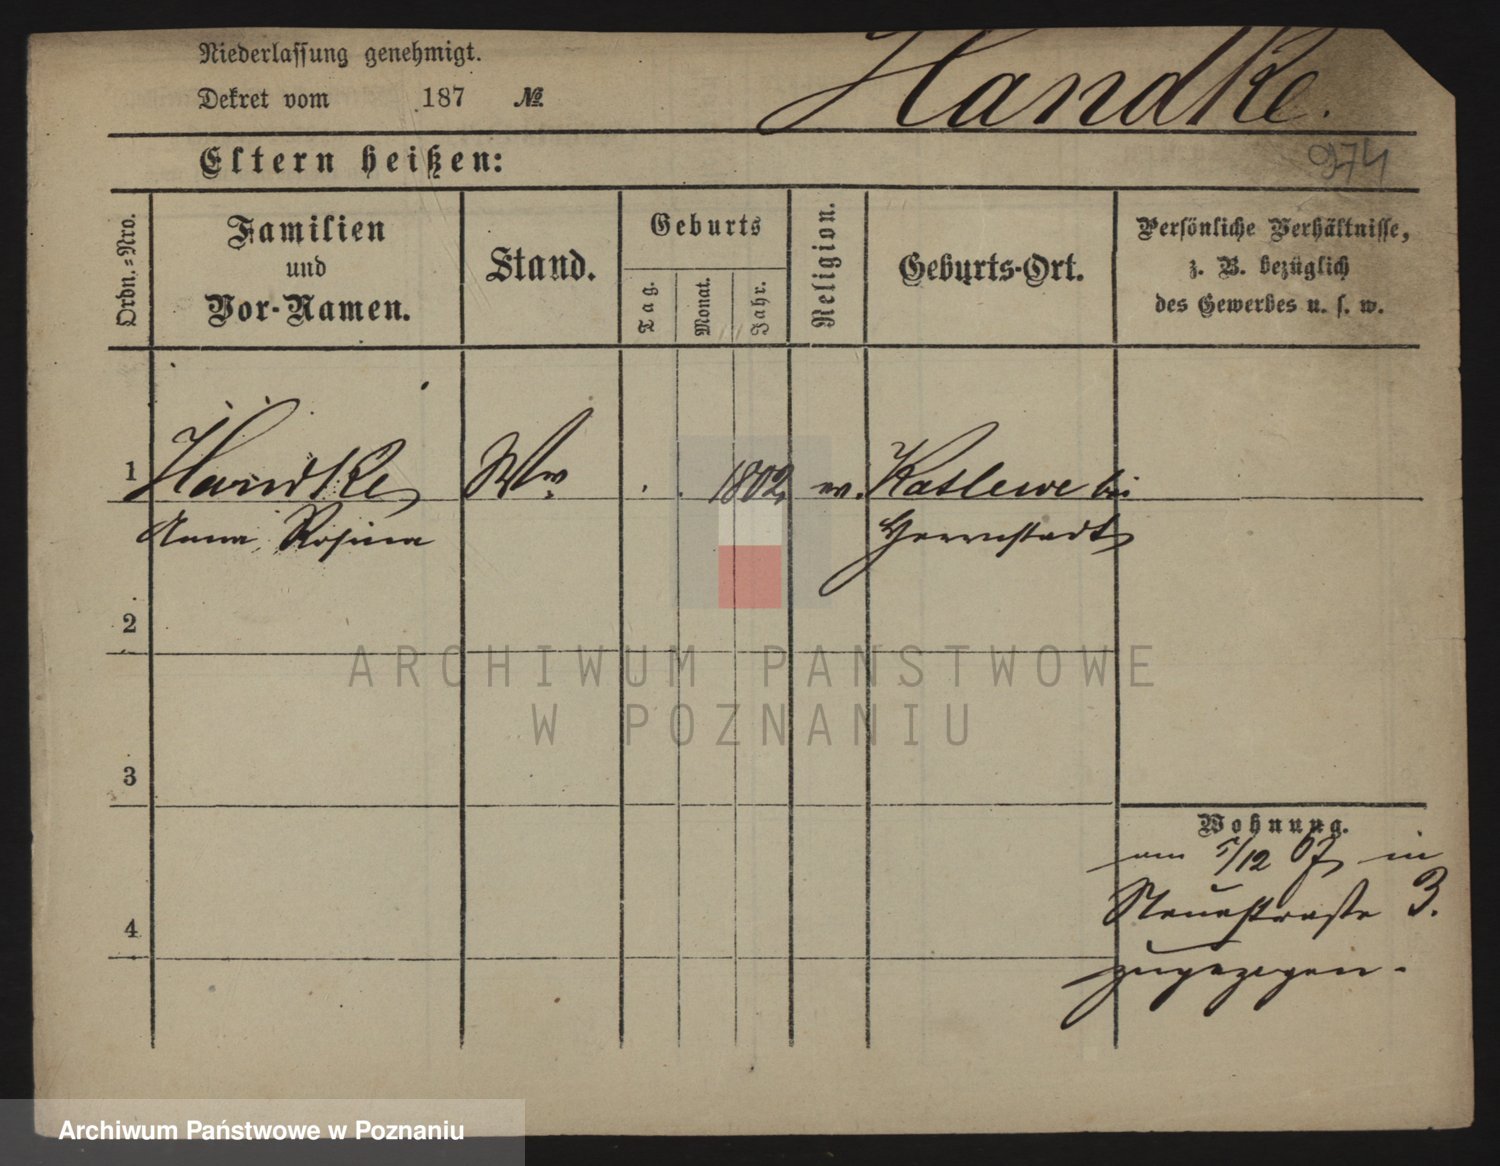 Niederlassung genehmigt.
Dekret vom 187 №
Handke.
974
Eltern heißen:
Ordn.-Nro.
Familien
und
Vor-Namen.
Stand.
Geburts
Tag.
Monat.
Jahr.
Religion.
Geburts-Ort.
Persönliche Verhältnisse,
z. B. bezüglich
des Gewerbes u. s. w.
1 Handke Ww. . . 1802. Katlewe bei
Anna Rosina Herrnstadt
2
3
4
Wohnung.
am 5/12 67 in
Neuestraße 3.
zugezogen.
ARCHIWUM PAŃSTWOWE
W POZNANIU
Archiwum Państwowe w Poznaniu